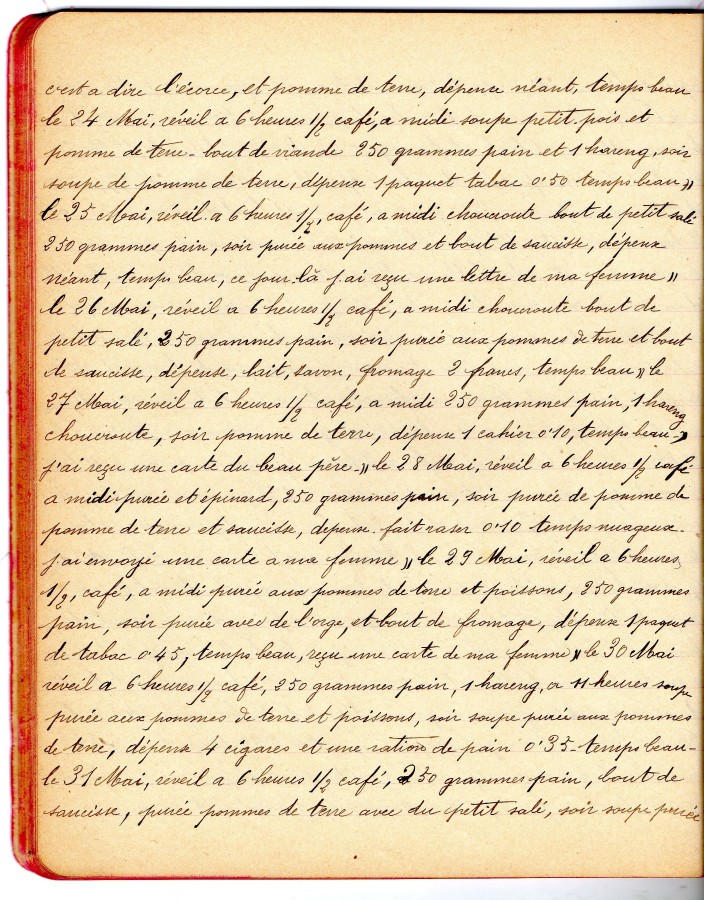 c'est a dire l'écorce, et pomme de terre, dépense néant, temps beau
le 24 Mai, réveil a 6 heures 1/2 café, a midi soupe petit pois et
pomme de terre - bout de viande 250 grammes pain et 1 hareng, soir
soupe de pomme de terre, dépense 1 paquet tabac 0'50 temps beau »
le 25 Mai, réveil a 6 heures 1/2, café, a midi choucroute bout de petit salé
250 grammes pain, soir purée aux pommes et bout de saucisse, dépense
néant, temps beau, ce jour-là j'ai reçu une lettre de ma femme »
le 26 Mai, réveil a 6 heures 1/2 café, a midi choucroute bout de
petit salé, 250 grammes pain, soir purée aux pommes de terre et bout
de saucisse, dépense, lait, savon, fromage 2 francs, temps beau » le
27 Mai, réveil a 6 heures 1/2 café, a midi 250 grammes pain, 1 hareng
choucroute, soir pomme de terre, dépense 1 cahier 0'10, temps beau - »
j'ai reçu une carte du beau père - » le 28 Mai, réveil a 6 heures 1/2 café
a midi purée et épinard, 250 grammes pain, soir purée de pomme de
pomme de terre et saucisse, depense - fait raser 0'10 temps nuageux -
j'ai envoyé une carte a ma femme » le 29 Mai, réveil a 6 heures
1/2, café, a midi purée aux pommes de terre et poissons, 250 grammes
pain, soir purée avec de l'orge, et bout de fromage, dépense 1 paquet
de tabac 0'45, temps beau, reçu une carte de ma femme » le 30 Mai
réveil a 6 heures 1/2 café, 250 grammes pain, 1 hareng, a 11 heures soupe
purée aux pommes de terre et poissons, soir soupe purée aux pommes
de terre, dépense 4 cigares et une ration de pain 0'35 - temps beau -
le 31 Mai, réveil a 6 heures 1/2 café, 250 grammes pain, bout de
saucisse, purée pommes de terre avec du petit salé, soir soupe purée